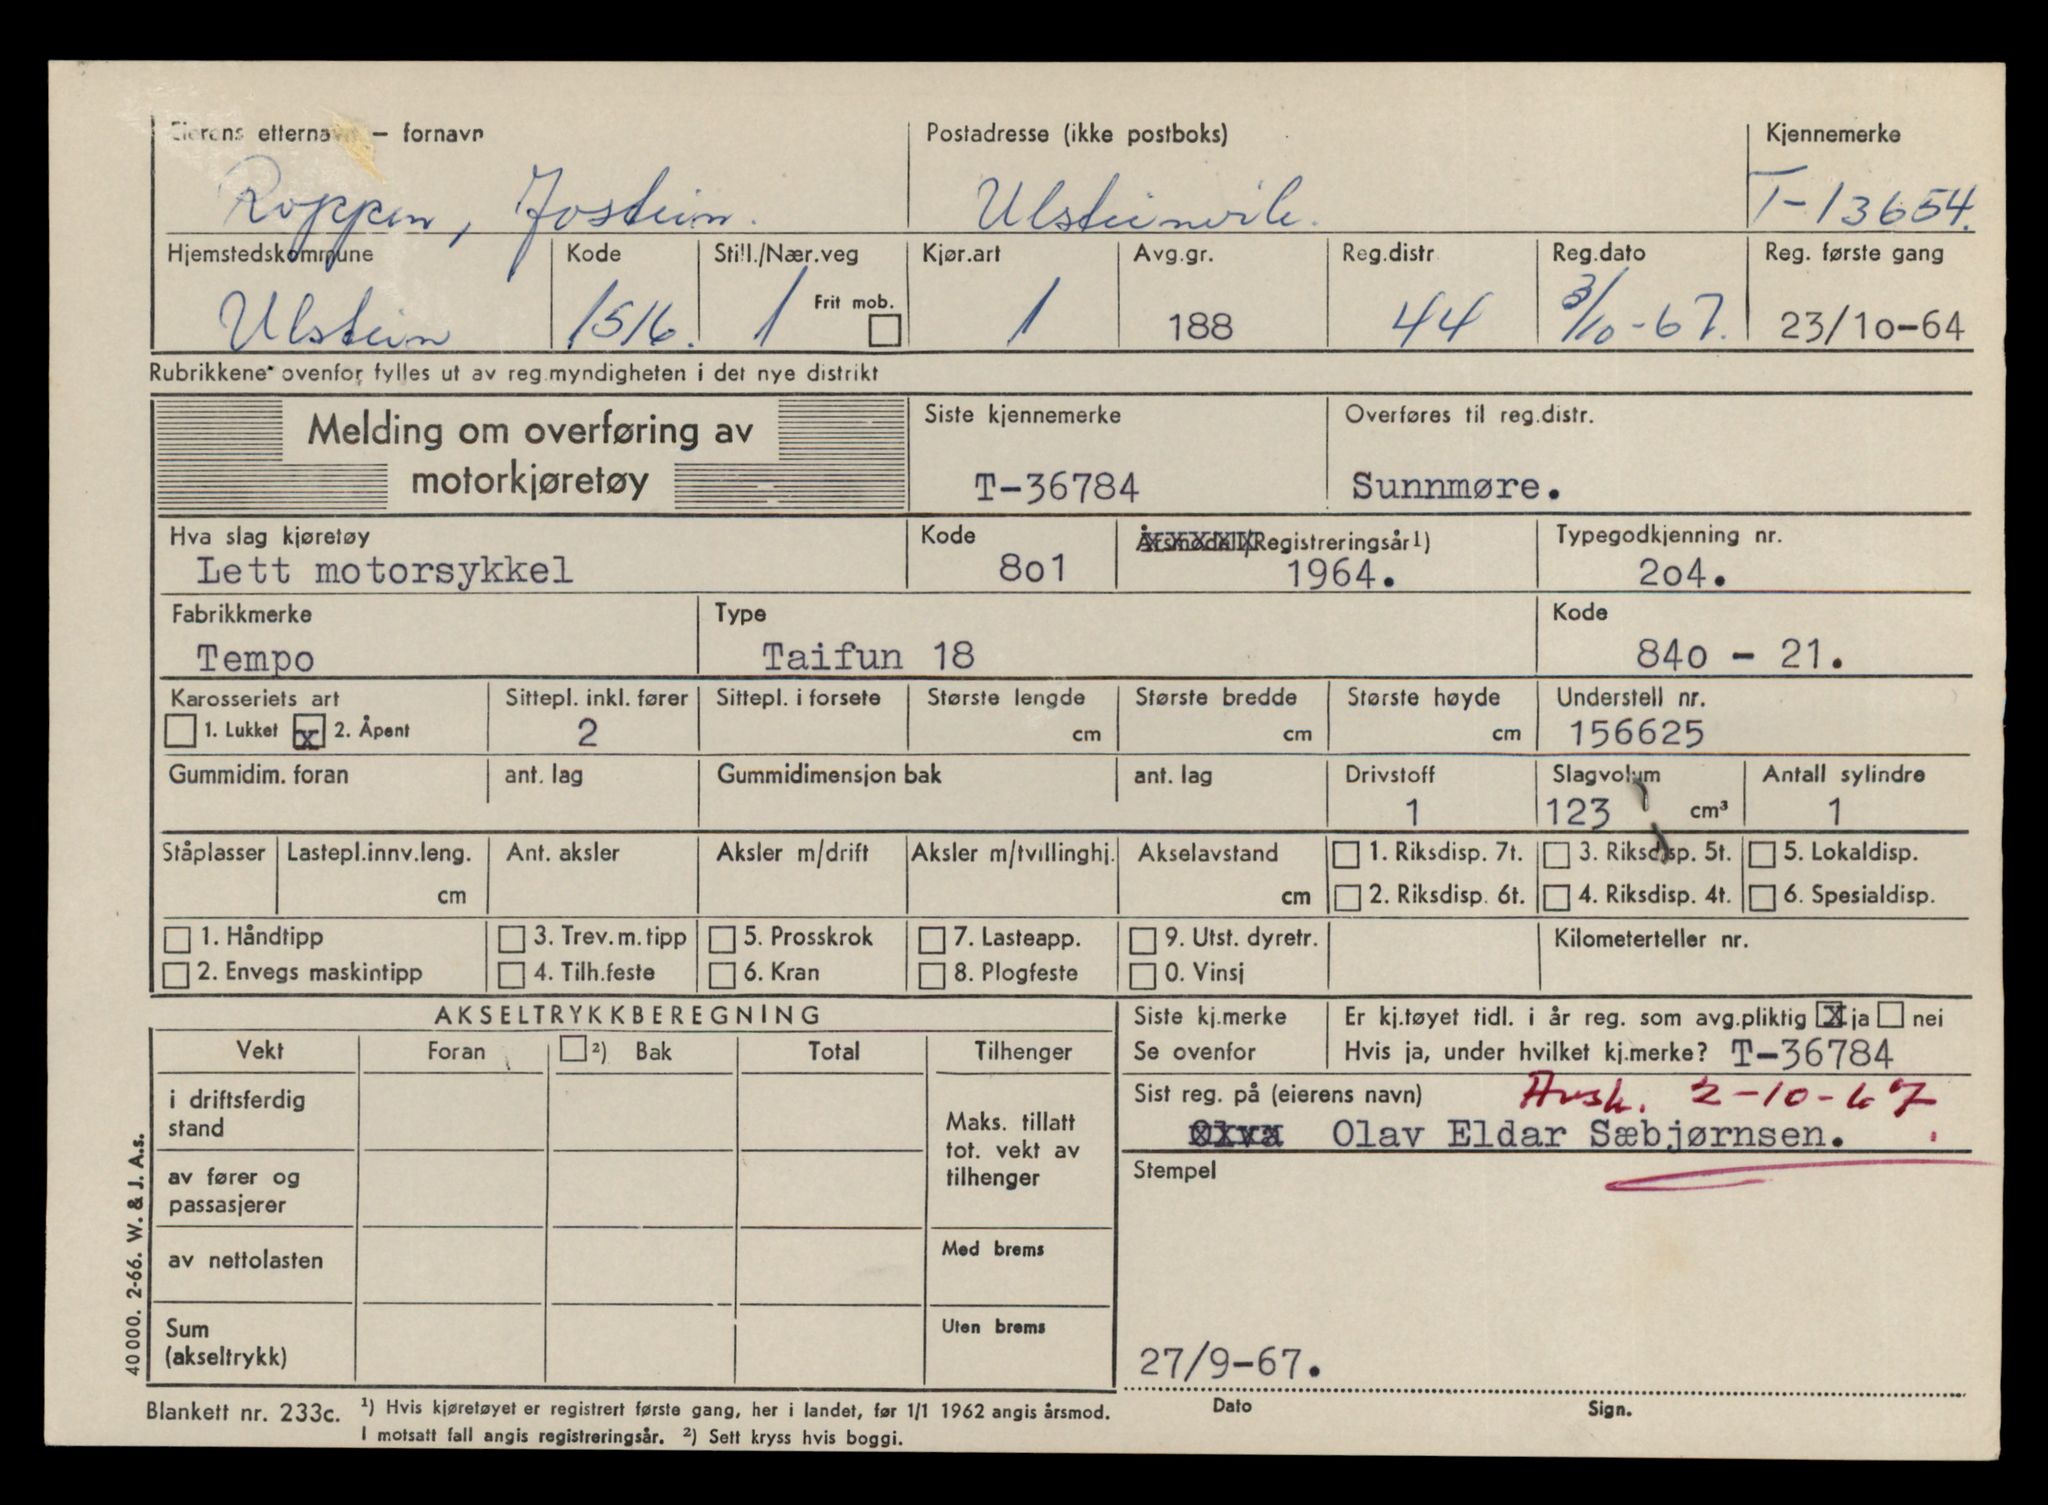 Eierens etternavn – fornavn Postadresse (ikke postboks) Kjennemerke
Roppen, Jostein. Ulsteinvik. T-13654.
Hjemstedskommune Kode Still./Nær.veg Kjør.art Avg.gr. Reg.distr. Reg.dato Reg. første gang
Ulstein 1516. 1 Frit mob. 1 188 44 3/10-67. 23/10-64
Rubrikkene ovenfor fylles ut av reg.myndigheten i det nye distrikt
Melding om overføring av motorkjøretøy
Siste kjennemerke Overføres til reg.distr.
T-36784 Sunnmøre.
Hva slag kjøretøy Kode Årsmodell/Registreringsår1) Typegodkjenning nr.
Lett motorsykkel 8o1 1964. 2o4.
Fabrikkmerke Type Kode
Tempo Taifun 18 84o - 21.
Karosseriets art Sittepl. inkl. fører Sittepl. i forsete Største lengde Største bredde Største høyde Understell nr.
1. Lukket x 2. Åpent 2 cm cm cm 156625
Gummidim. foran ant. lag Gummidimensjon bak ant. lag Drivstoff Slagvolum Antall sylindre
1 123 cm³ 1
Ståplasser Lastepl.innv.leng. Ant. aksler Aksler m/drift Aksler m/tvillinghj. Akselavstand 1. Riksdisp. 7t. 3. Riksdisp. 5t. 5. Lokaldisp.
cm cm 2. Riksdisp. 6t. 4. Riksdisp. 4t. 6. Spesialdisp.
1. Håndtipp 3. Trev.m.tipp 5. Prosskrok 7. Lasteapp. 9. Utst. dyretr. Kilometerteller nr.
2. Envegs maskintipp 4. Tilh.feste 6. Kran 8. Plogfeste 0. Vinsj
AKSELTRYKKBEREGNING
Vekt Foran 2) Bak Total Tilhenger
i driftsferdig stand
av fører og passasjerer
av nettolasten
Sum (akseltrykk)
Maks. tillatt tot. vekt av tilhenger
Med brems
Uten brems
Siste kj.merke Er kj.tøyet tidl. i år reg. som avg.pliktig x ja nei
Se ovenfor Hvis ja, under hvilket kj.merke? T-36784
Sist reg. på (eierens navn) Avsk. 2-10-67
Olva Olav Eldar Sæbjørnsen.
Stempel
27/9-67.
Dato Sign.
40000. 2-66. W. & J. A.s.
Blankett nr. 233c. 1) Hvis kjøretøyet er registrert første gang, her i landet, før 1/1 1962 angis årsmod.
I motsatt fall angis registreringsår. 2) Sett kryss hvis boggi.